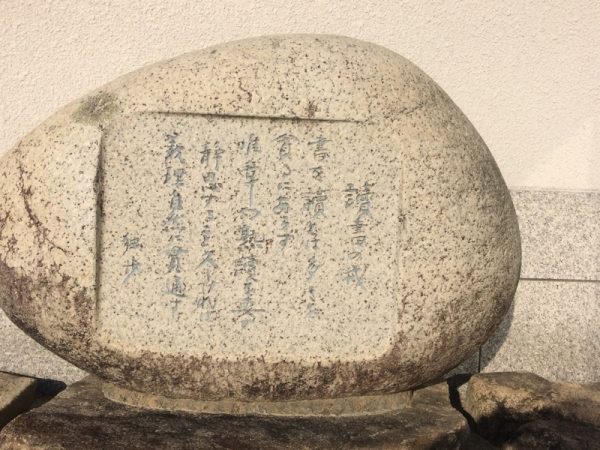 讀書の戒
書を讀むは多きを
貪るにあらず
唯章句熟讀を要す
静思すること久しければ
義理自然貫通す
独歩